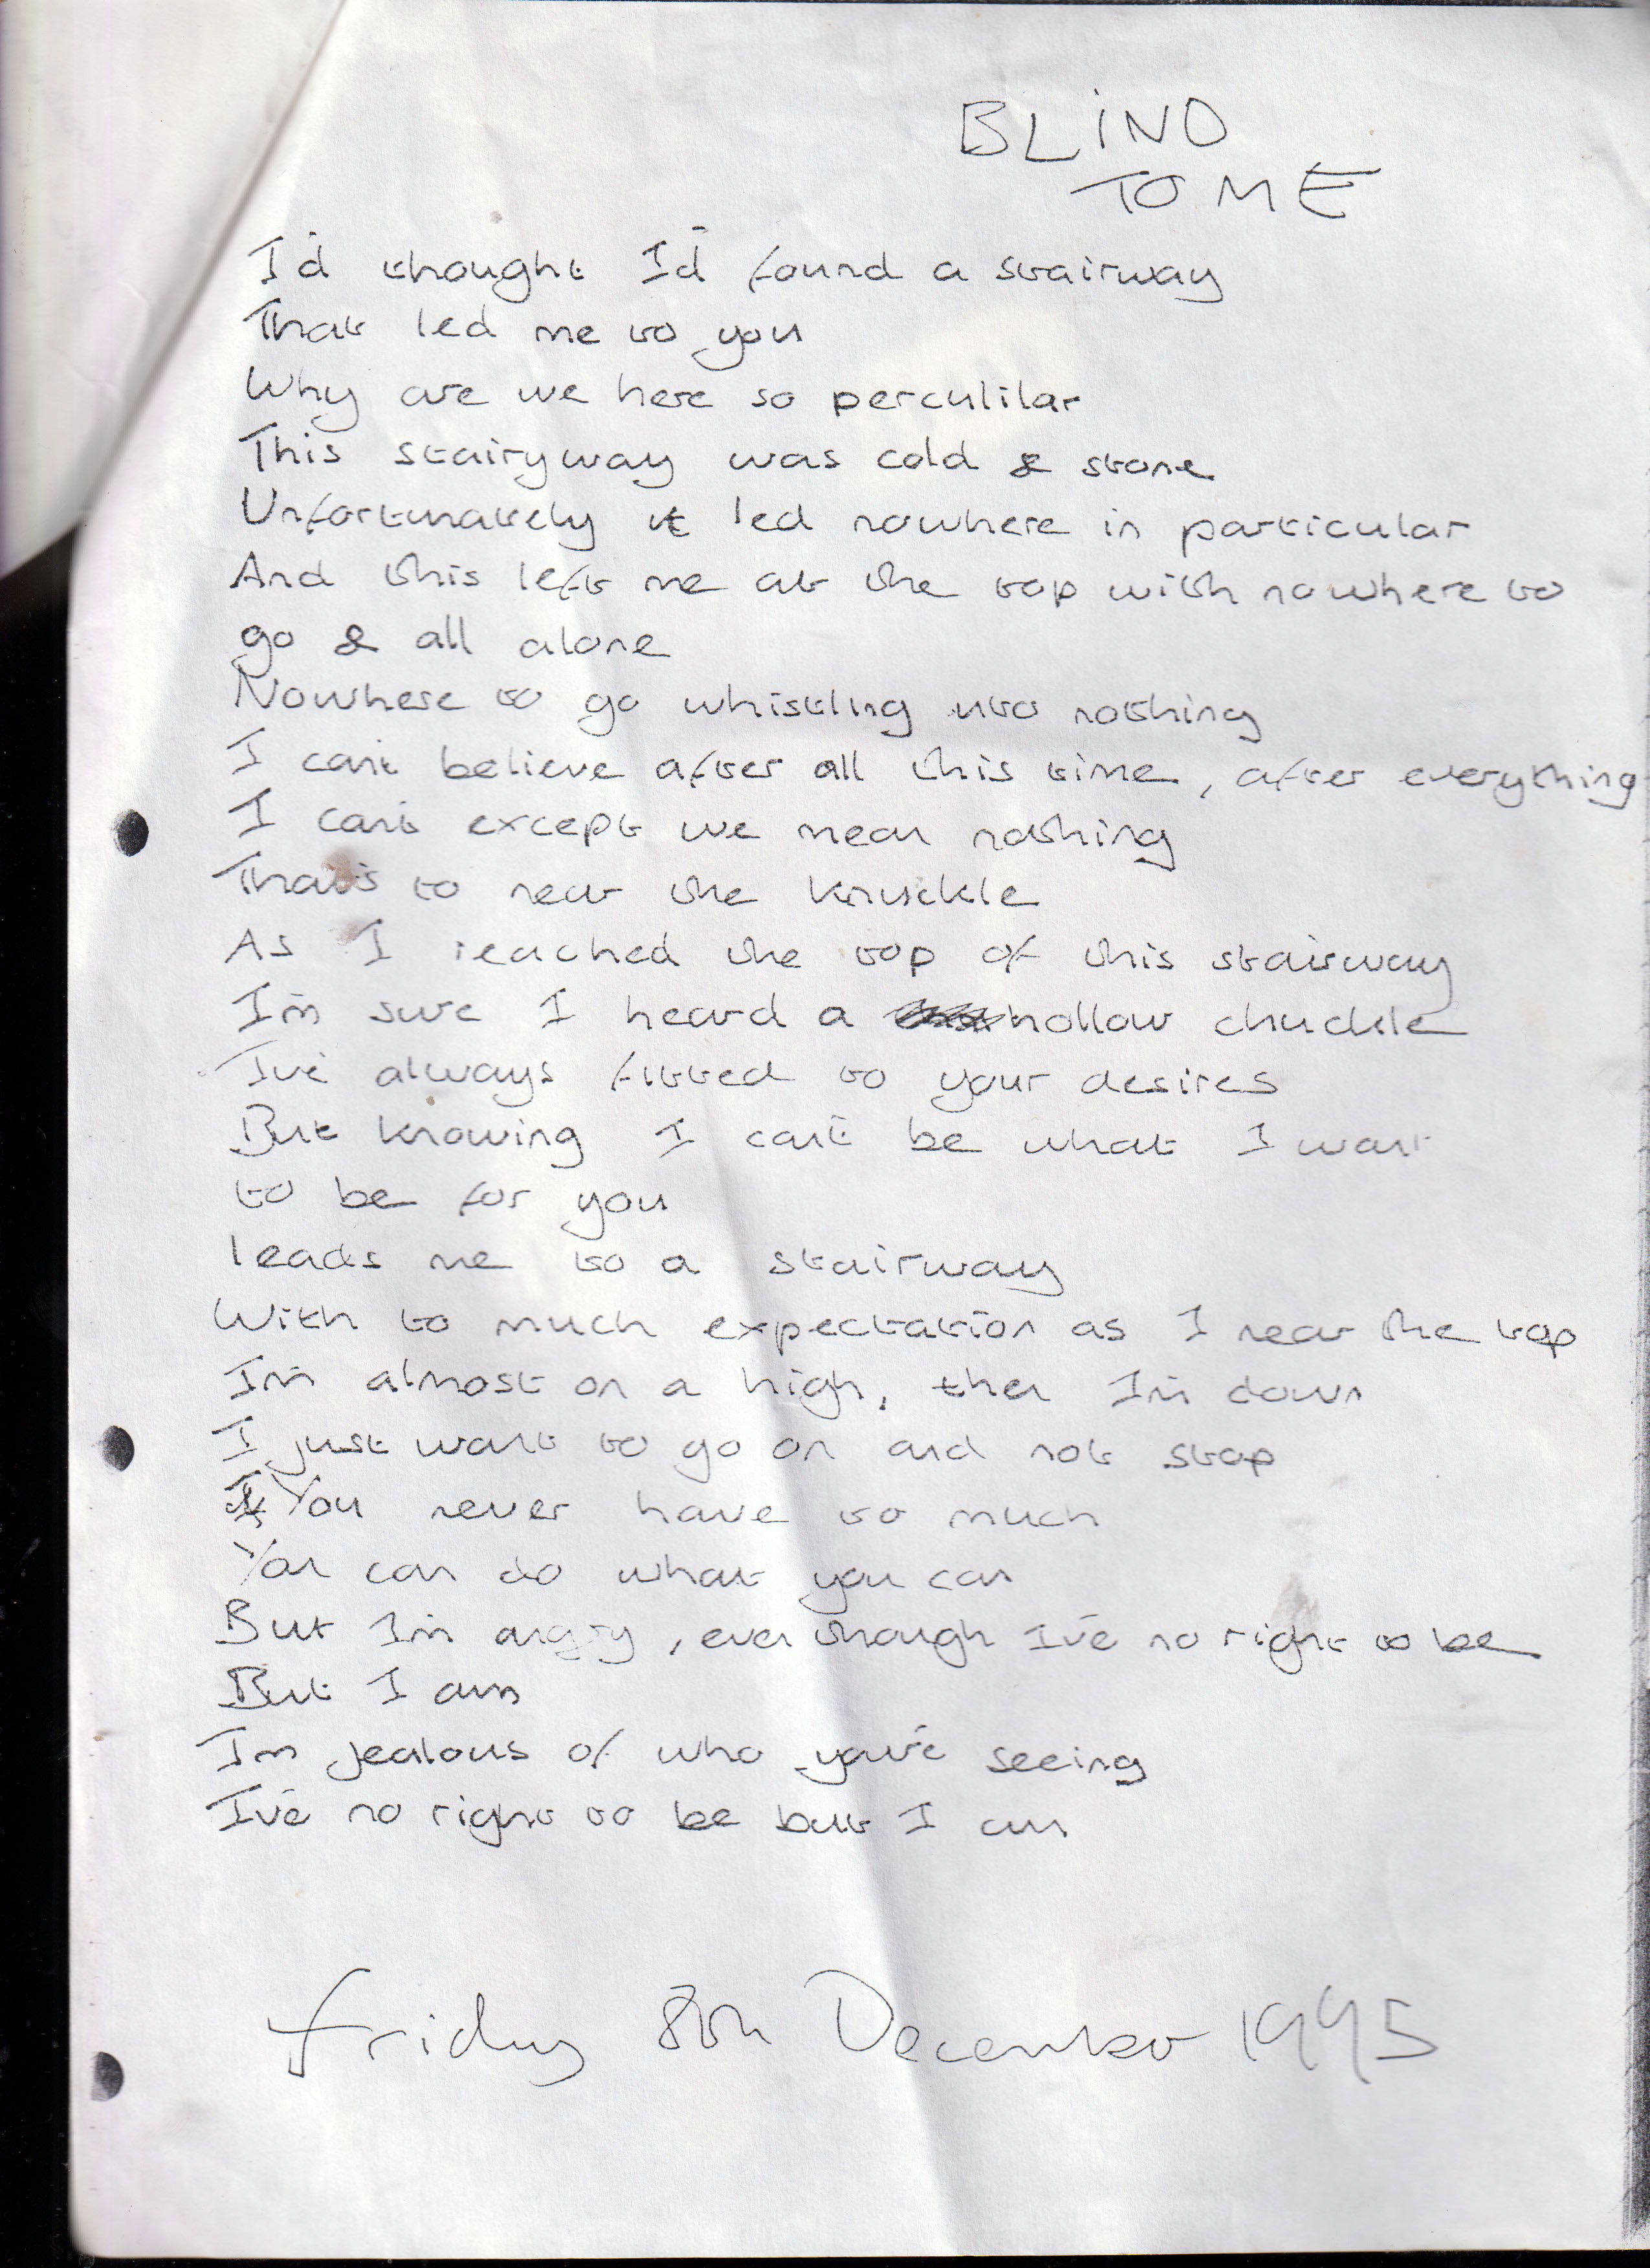 BLIND
TO ME
I'd thought I'd found a stairway
That led me to you
Why are we here so perculilar
This stairyway was cold & stone
Unfortunately it led nowhere in particular
And this left me at the top with nowhere to
go & all alone
Nowhere to go whistling into nothing
I can't believe after all this time, after everything
I can't except we mean nothing
That's to near the knuckle
As I reached the top of this stairway
I'm sure I heard a hollow chuckle
I've always fitted to your desires
But knowing I can't be what I want
to be for you
leads me to a stairway
With to much expectation as I near the top
I'm almost on a high, then I'm down
I just want to go on and not stop
You never have to much
You can do what you can
But I'm angry, even though I've no right to be
But I am
Im jealous of who you're seeing
I've no right to be but I am
Friday 8th December 1995